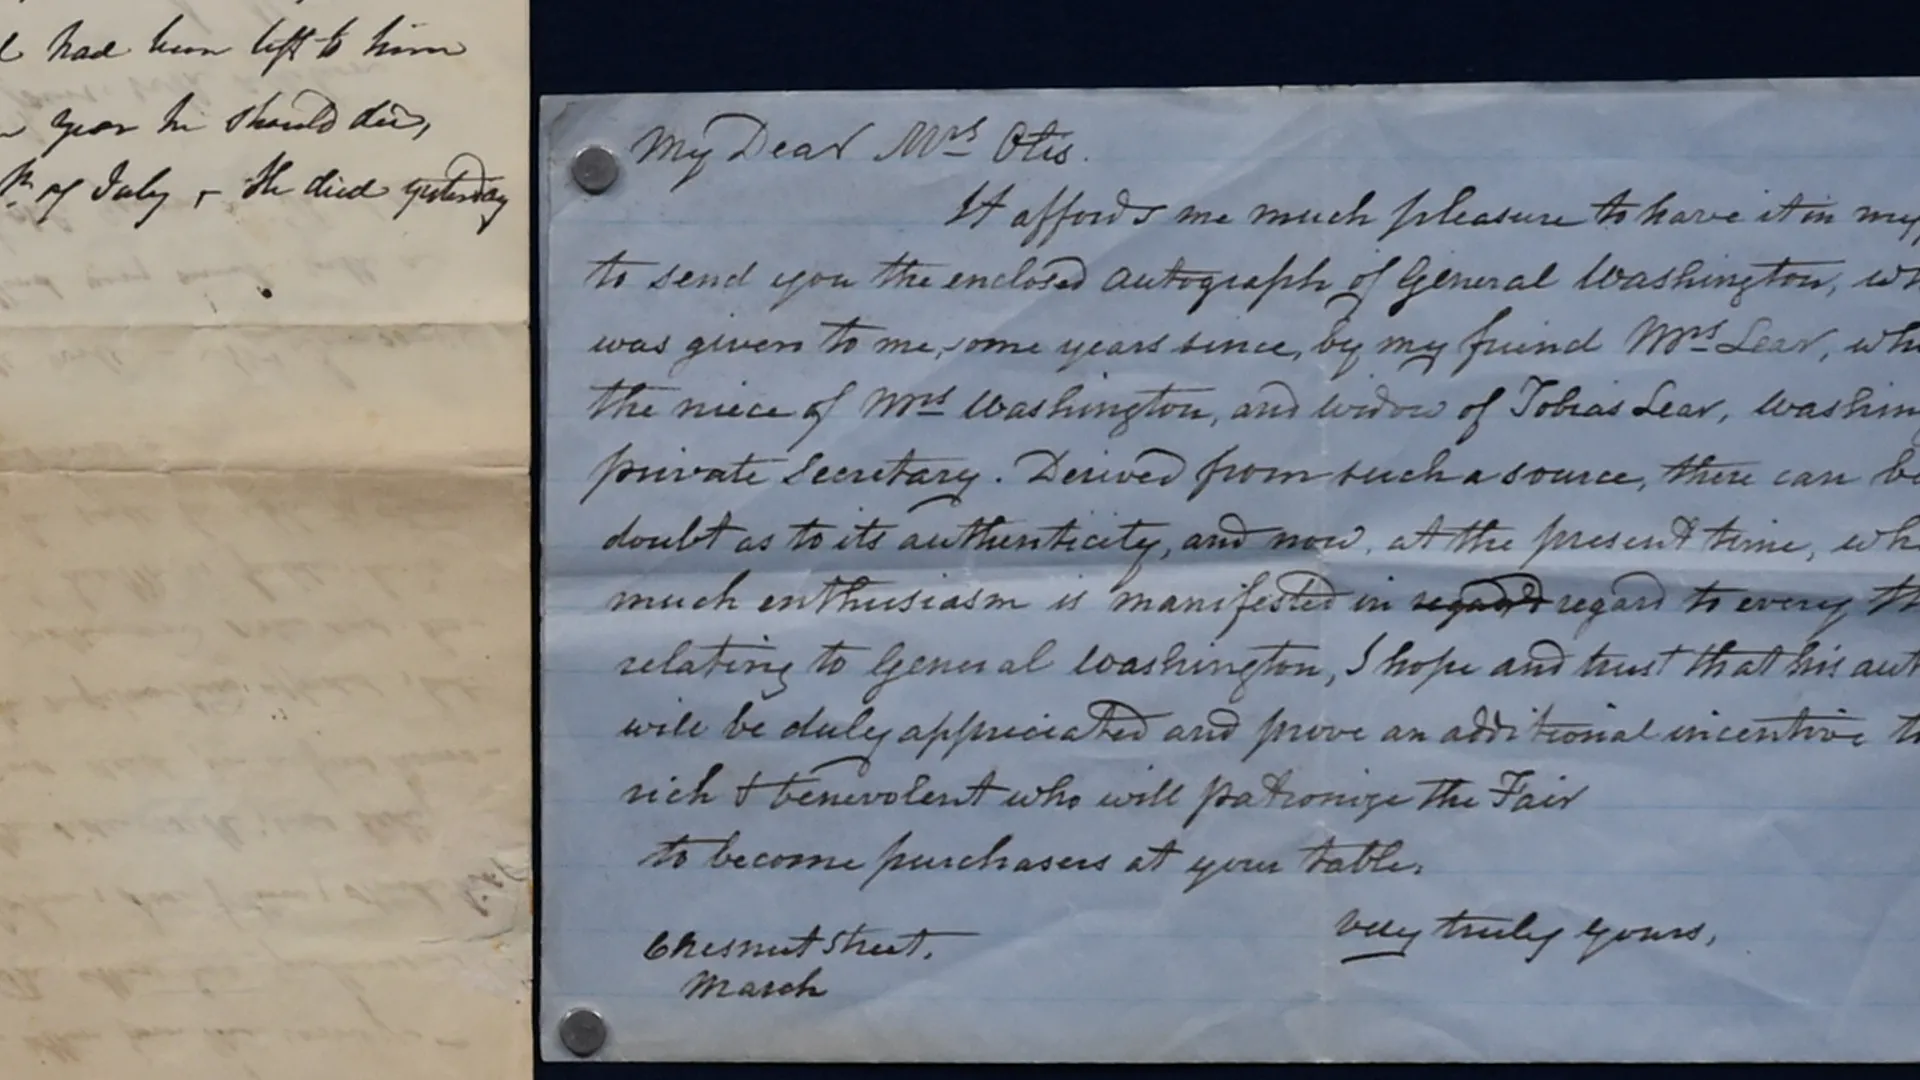 had been left to him
year he should die,
of July, & He died yesterday
My Dear Mrs Otis.
It affords me much pleasure to have it in my
to send you the enclosed autograph of General Washington, wh
was given to me, some years since, by my friend Mrs Lear, who
the niece of Mrs Washington, and widow of Tobias Lear, Washing
private Secretary. Derived from such a source, there can be
doubt as to its authenticity, and now, at the present time, whe
much enthusiasm is manifested in regard to every th
relating to General Washington, I hope and trust that his aut
will be duly appreciated and prove an additional incentive t
rich & benevolent who will patronize the Fair
to become purchasers at your table.
Very truly yours,
Chesnut Street.
March